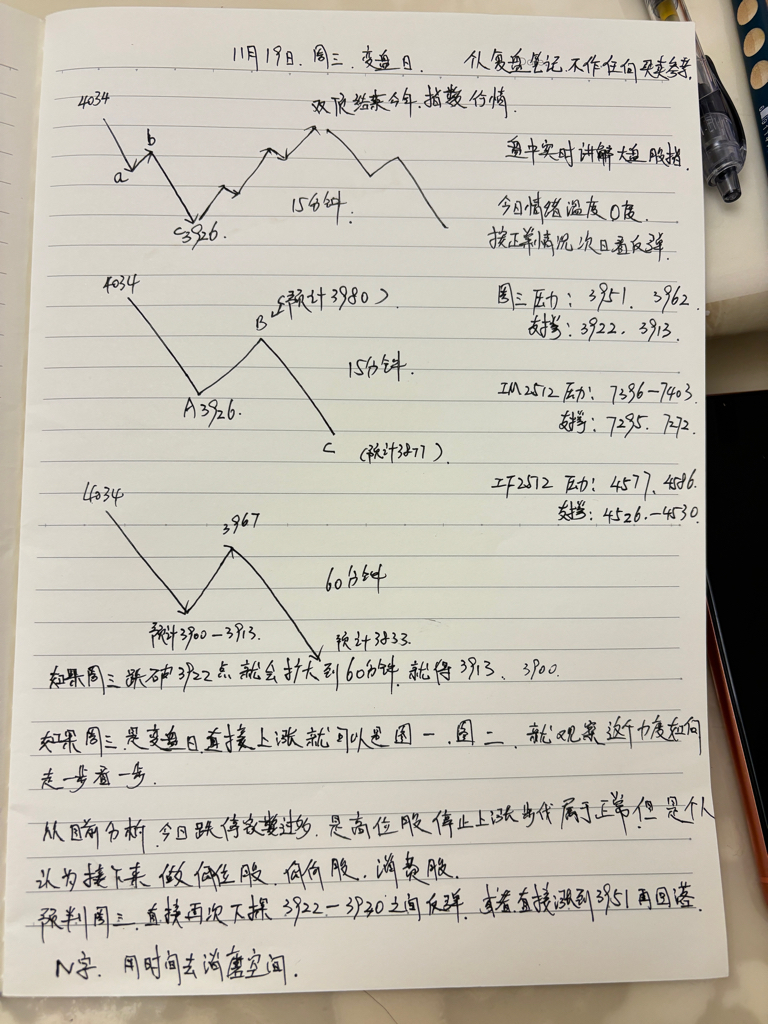 11月19日.周三.变盘日. 个人复盘笔记.不作任何买卖参考.
双顶结束今年.指数行情.
4034
b
a
c3926.
15分钟.
盘中实时讲解大盘股指.
今日情绪温度0度.
按正常情况次日看反弹.
4034
B (预计3980)
A3926.
15分钟.
C (预计3877).
周三压力: 3951. 3962.
支撑: 3922. 3913.
IM2512 压力: 7396-7403.
支撑: 7295. 7272.
IF2512 压力: 4577. 4586.
支撑: 4526.-4530.
4034
3967
60分钟
预计3900-3913.
预计3833.
如果周三跌破3922点就会扩大到60分钟.就得3913、3900.
如果周三是变盘日.直接上涨就可以是图一.图二. 就观察这个力度如何
走一步看一步.
从目前分析.今日跌停家数过多.是高位股停止上涨步伐属于正常.但是个人
认为接下来做低位股.低价股.消费股.
预判周三.直接再次下探3922-3930之间反弹.或者直接涨到3951再回落.
N字.用时间去消磨空间.